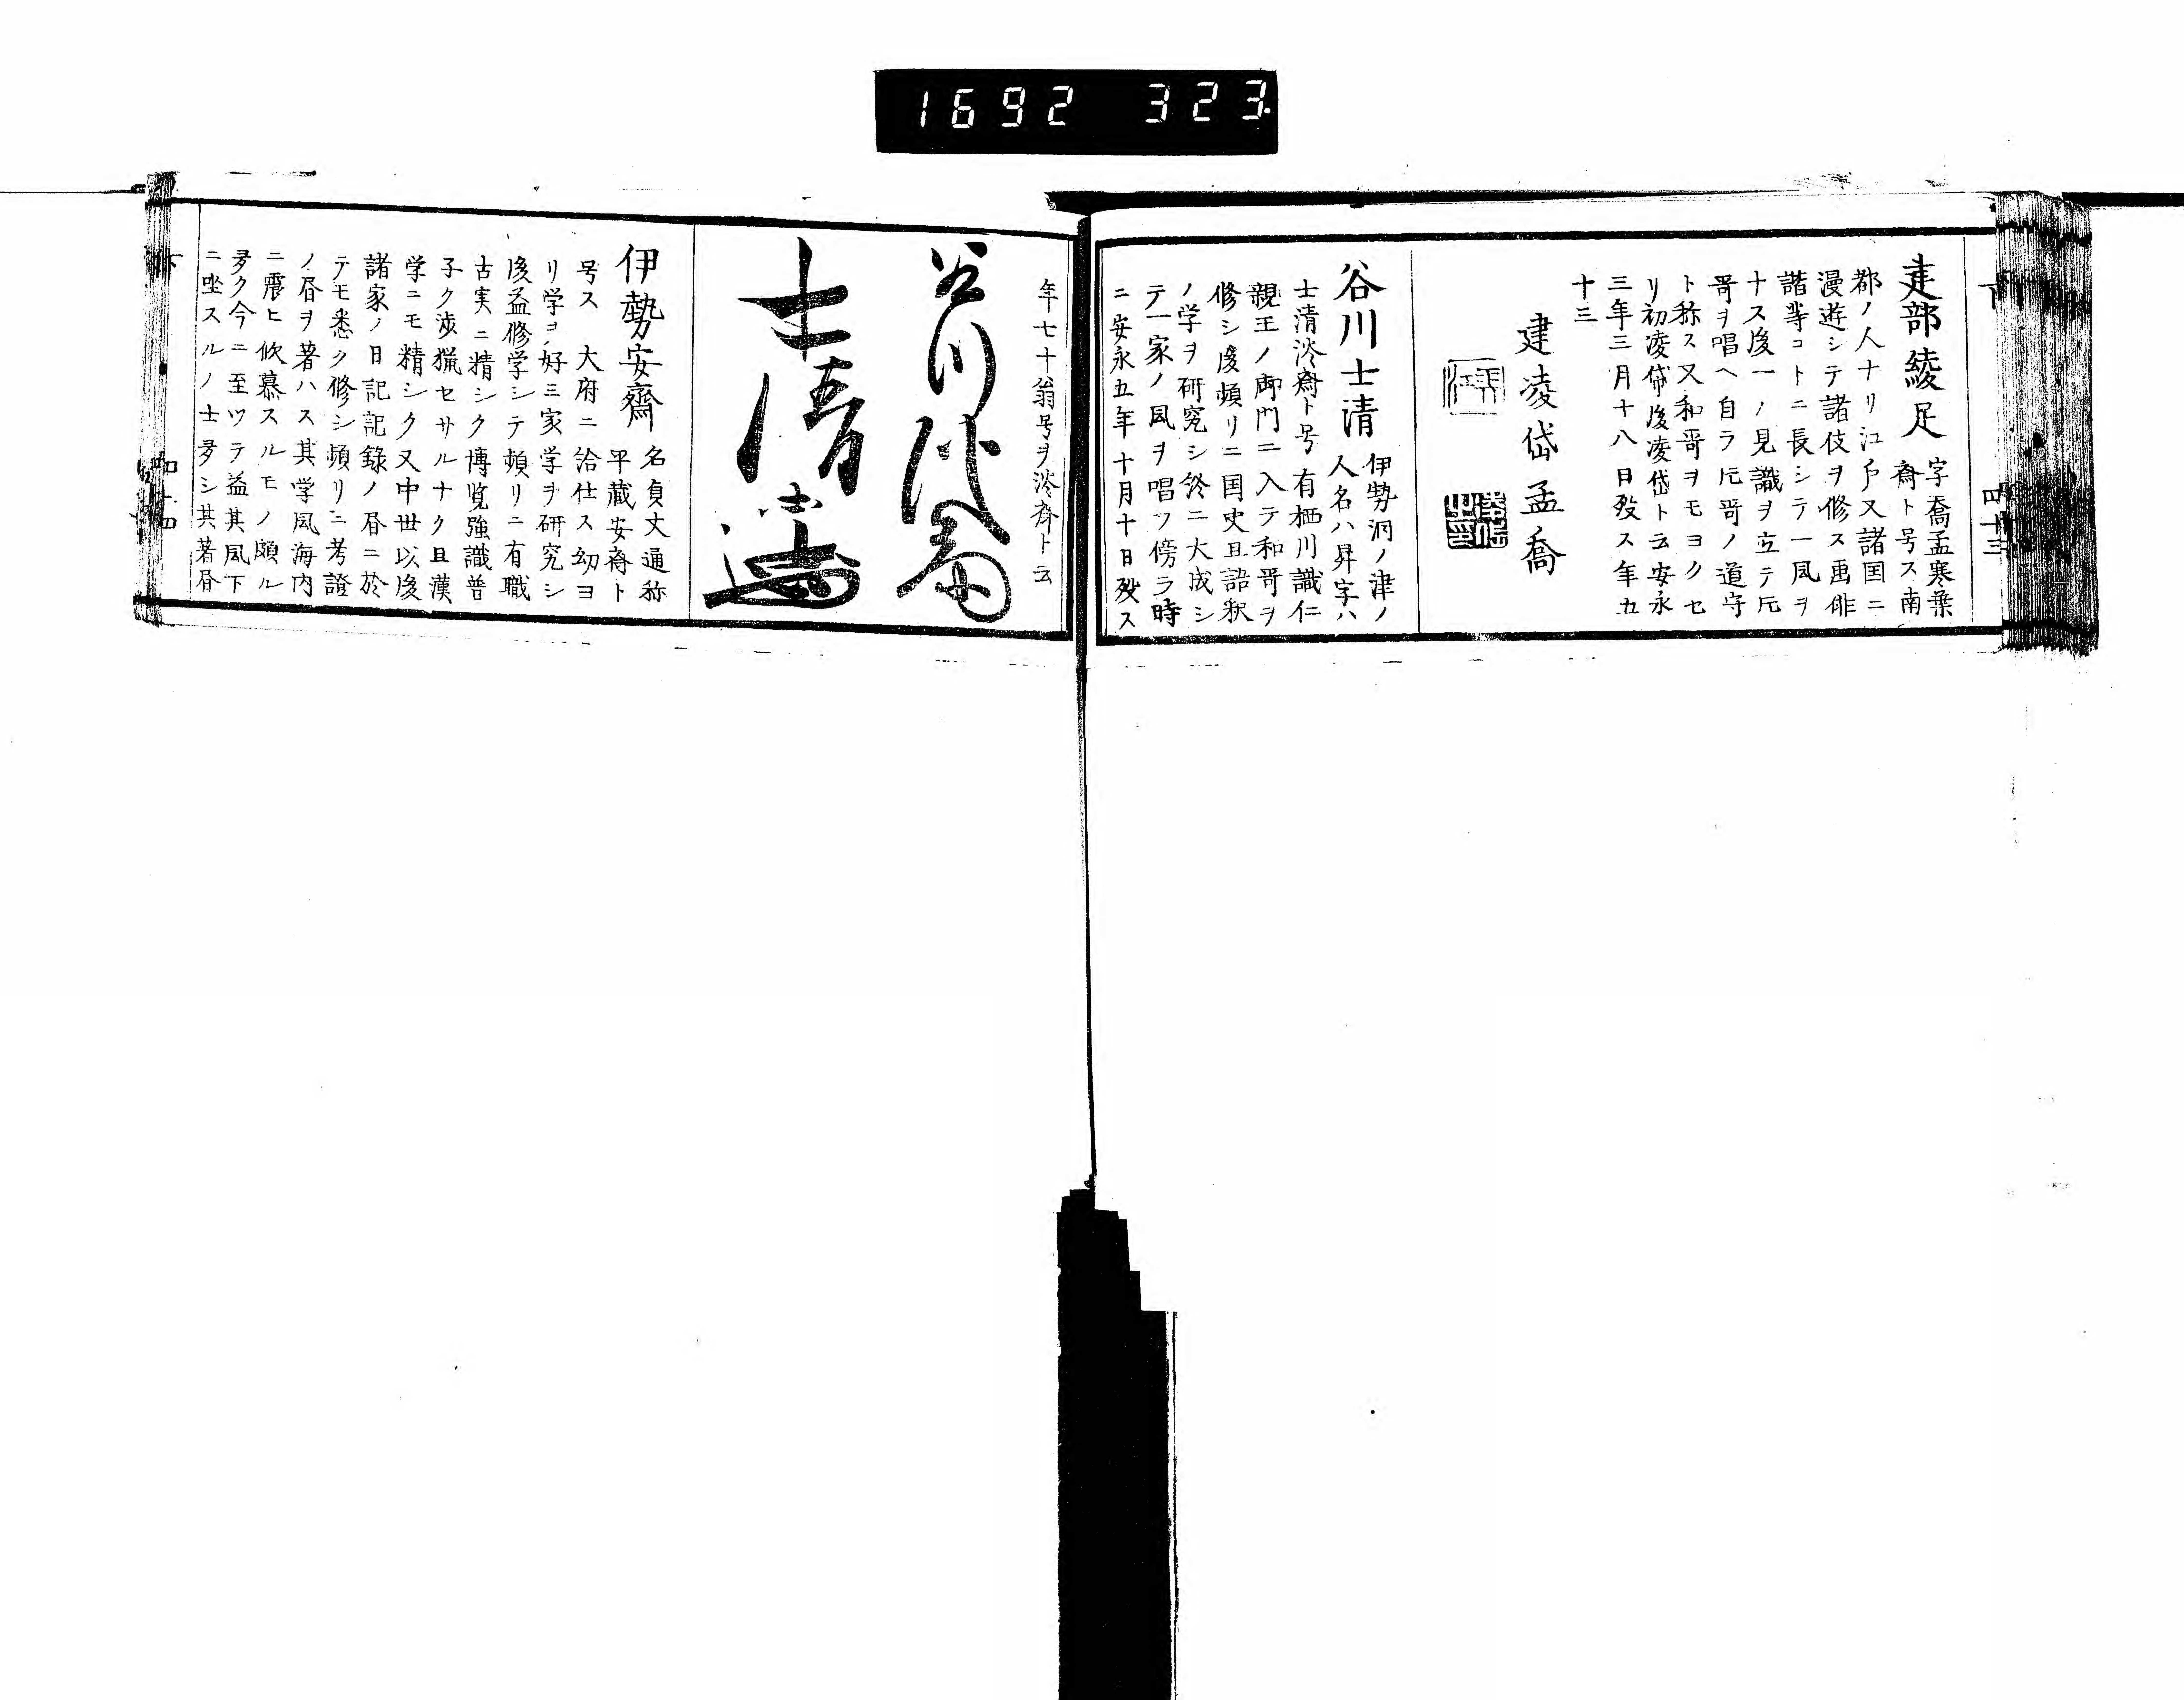 1692 323
下 四十三
建部綾足 字喬孟寒葉
斎ト号ス南
都ノ人ナリ江戸又諸国ニ
漫遊シテ諸伎ヲ修ス画俳
諧等コトニ長シテ一風ヲ
ナス後一ノ見識ヲ立テ片
哥ヲ唱ヘ自ラ片哥ノ道守
ト称ス又和哥ヲモヨクセ
リ初凌岱後凌岱ト云安永
三年三月十八日歿ス年五
十三
建凌岱孟喬
谷川士清 伊勢洞ノ津ノ
人名ハ昇字ハ
士清淡斎ト号有栖川識仁
親王ノ御門ニ入テ和哥ヲ
修シ後頻リニ国史且語釈
ノ学ヲ研究シ終ニ大成シ
テ一家ノ風ヲ唱フ傍ラ時
ニ安永五年十月十日歿ス
年七十翁号ヲ淡斎ト云
谷川淡斎
士清
伊勢安齋 名貞丈通称
平蔵安斎ト
号ス 大府ニ給仕ス幼ヨ
リ学ヲ好ミ家学ヲ研究シ
後益修学シテ頻リニ有職
古実ニ精シク博覧強識普
子ク渉猟セサルナク且漢
学ニモ精シク又中世以後
諸家ノ日記記録ノ昏ニ於
テモ悉ク修シ頻リニ考證
ノ昏ヲ著ハス其学風海内
ニ震ヒ欣慕スルモノ頗ル
多ク今ニ至ツテ益其風下
ニ坐スルノ士多シ其著昏
下 四十四